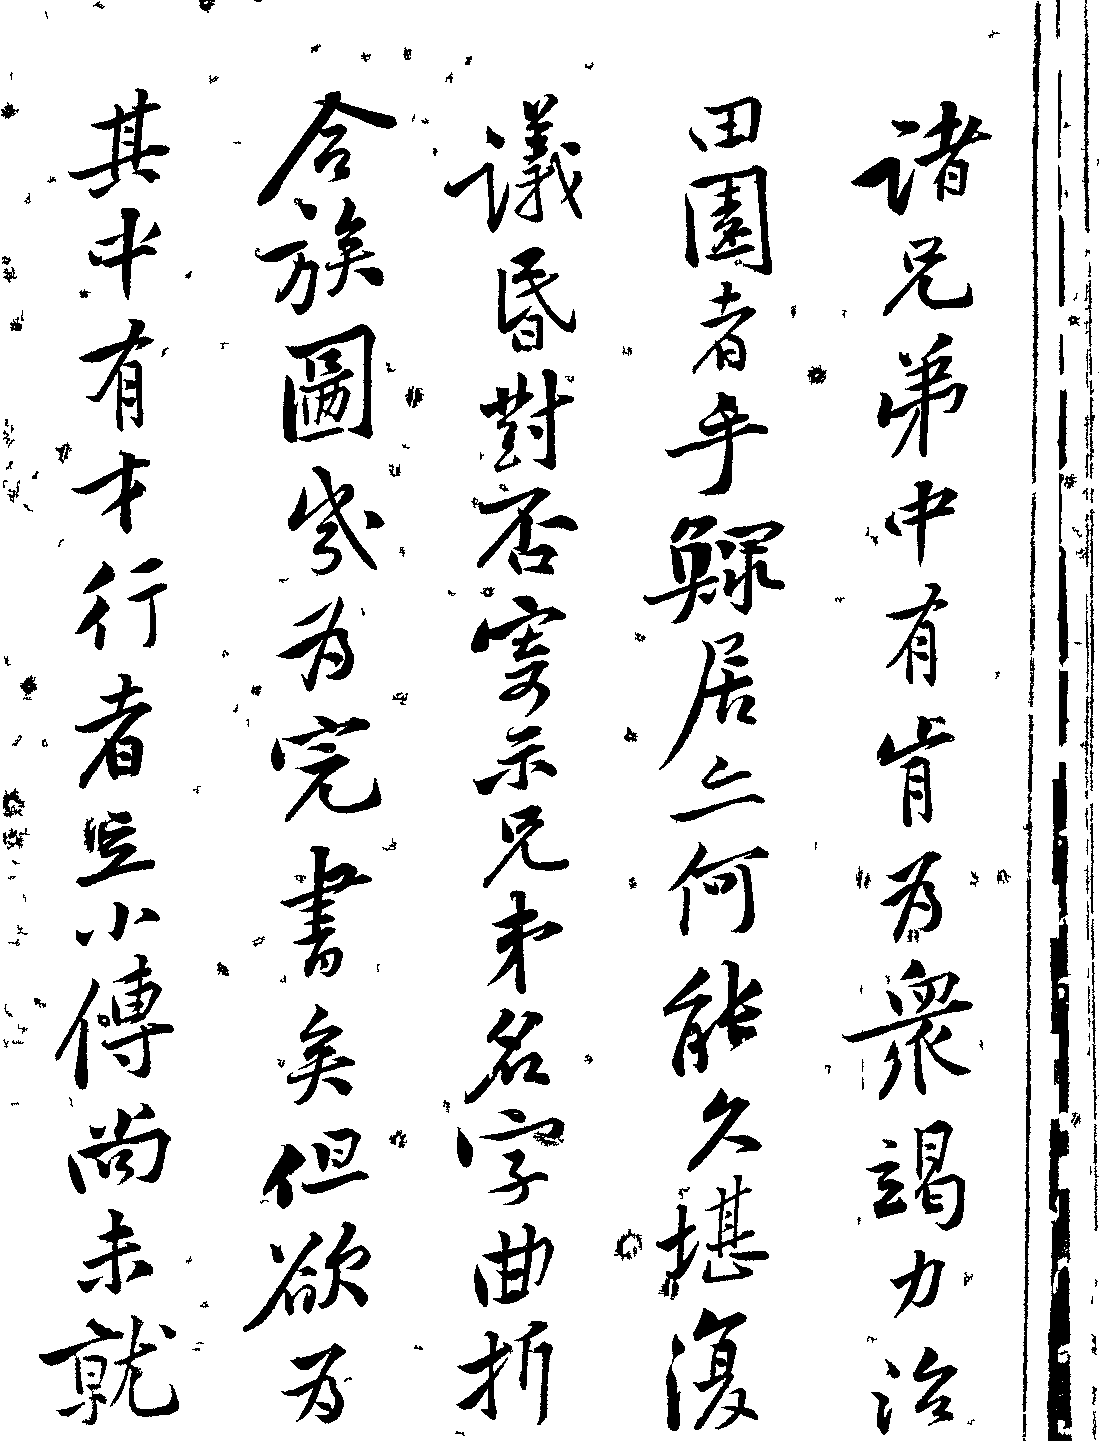 諸兄弟中有肯為衆竭力治
田園者乎鰥居亦何能久堪復
議昏對否寄示兄弟名字曲折
合族圖幾為完書矣但欲為
其中有才行者立小傳尚未就